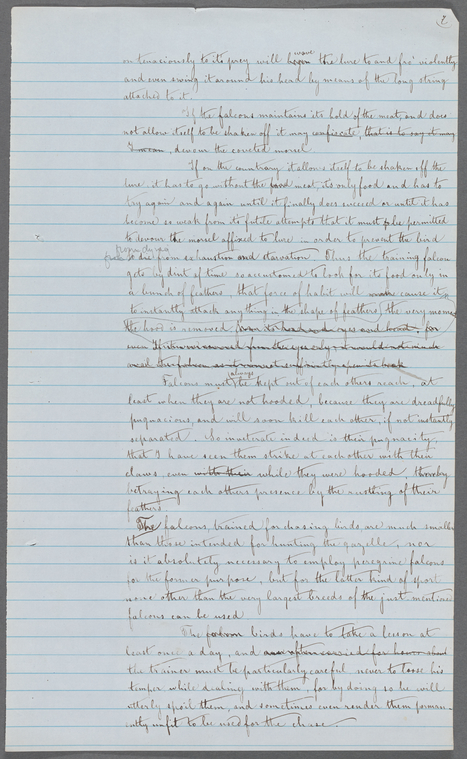 7
on tenaciously to its prey will wave the lure to and fro' violently
and even swong it around his head by means of the long string
attached to it.
If the falcons maintains its hold of the meat, and does
not allow itself to be shaken off it may confiscate, that is to say it may
I mean, devour the coveted morsel
If on the countrary it allows itself to be shaken off the
lure, it has to go without the food meat its only food and has to
try again and again until it finally does succeed or until it has
become so weak from its futile attempts that it must be permitted
to devour the morsel affixed to lure in order to prevent the bird
from dying
to die from exhaustion and starvation. Thus the training falcon
gets by dint of time so accustomed to look for its food only in
a bunch of feathers, that force of habit will cause it
to instantly attack any thing in the shape of feathers, the very moment
the hood is removed from its head eyes and head, for
even if it is removed from the eyes it would not
Falcons must always be kept out of each others reach, at
least when they are not hooded, because they are dreadfully
pugnacious, and will soon kill each other, if not instantly
separated. So inveterate indeed is their pugnacity,
that I have seen them strike at each other with their
claws, even with their while they were hooded, thereby
betraying each others presence by the rustling of their
feathers
The falcons, trained for chasing birds, are much smaller
than those intended for hunting the gazelle, nor
is it absolutely necessary to employ peregrine falcons
for the former purpose, but for the latter kind of sport
none other than the very largest breeds of the just mentioned
falcons can be used
The falcon birds have to take a lesson at
least once a day, and
the trainer must be particularly careful never to loose his
temper while dealing with them, for by doing so he will
utterly spoil them, and sometimes even render them perman-
ently unfit to be used for the chase.